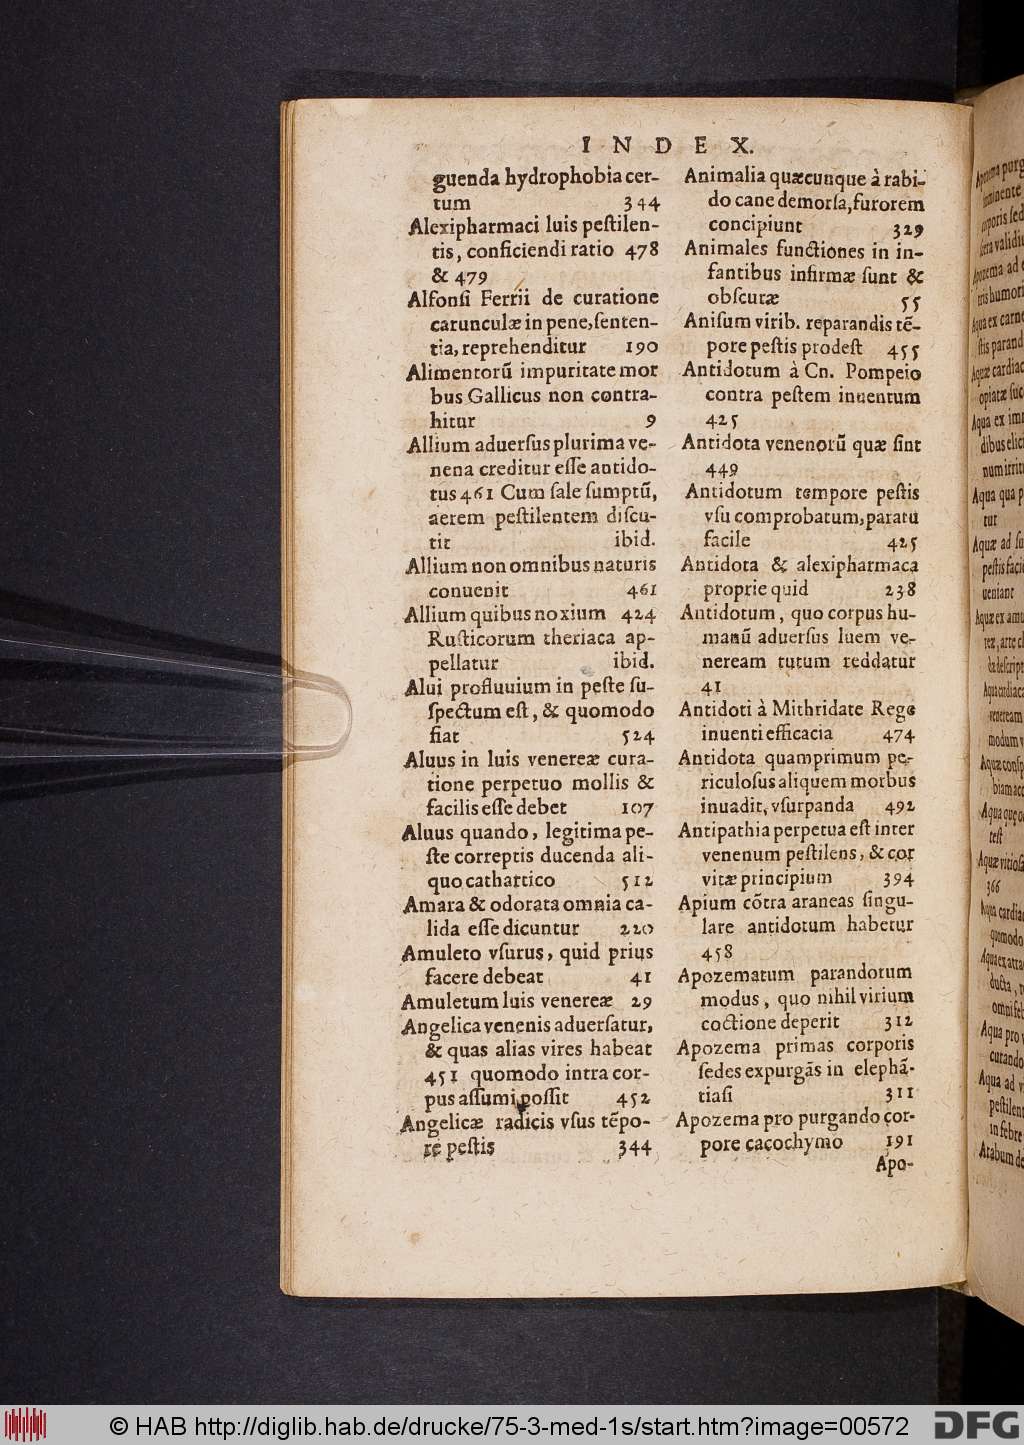 INDEX.
guenda hydrophobia cer-
tum 344
Alexipharmaci luis peſtilen-
tis, conficiendi ratio 478
& 479
Alfonſi Ferrii de curatione
carunculæ in pene, ſenten-
tia, reprehenditur 190
Alimentorũ impuritate mor
bus Gallicus non contra-
hitur 9
Allium aduerſus plurima ve-
nena creditur eſſe antido-
tus 461 Cum ſale ſumptũ,
aerem peſtilentem diſcu-
tit ibid.
Allium non omnibus naturis
conuenit 461
Allium quibus noxium 424
Ruſticorum theriaca ap-
pellatur ibid.
Alui profluuium in peſte ſu-
ſpectum eſt, & quomodo
fiat 524
Aluus in luis venereæ cura-
tione perpetuo mollis &
facilis eſſe debet 107
Aluus quando, legitima pe-
ſte correptis ducenda ali-
quo cathartico 512
Amara & odorata omnia ca-
lida eſſe dicuntur 220
Amuleto vſurus, quid prius
facere debeat 41
Amuletum luis venereæ 29
Angelica venenis aduerſatur,
& quas alias vires habeat
451 quomodo intra cor-
pus aſſumi poſſit 452
Angelicæ radicis vſus tẽpo-
re peſtis 344
Animalia quæcunque à rabi-
do cane demorſa, furorem
concipiunt 329
Animales functiones in in-
fantibus infirmæ ſunt &
obſcuræ 55
Aniſum virib. reparandis tẽ-
pore peſtis prodeſt 455
Antidotum à Cn. Pompeio
contra peſtem inuentum
425
Antidota venenorũ quæ ſint
449
Antidotum tempore peſtis
vſu comprobatum, paratu
facile 425
Antidota & alexipharmaca
proprie quid 238
Antidotum, quo corpus hu-
manũ aduerſus luem ve-
neream tutum reddatur
41
Antidoti à Mithridate Rege
inuenti efficacia 474
Antidota quamprimum pe-
riculoſus aliquem morbus
inuadit, vſurpanda 492
Antipathia perpetua eſt inter
venenum peſtilens, & cor
vitæ principium 394
Apium cõtra araneas ſingu-
lare antidotum habetur
458
Apozematum parandorum
modus, quo nihil virium
coctione deperit 312
Apozema primas corporis
ſedes expurgãs in elephã-
tiaſi 311
Apozema pro purgando cor-
pore cacochymo 191
Apo-
© HAB http://diglib.hab.de/drucke/75-3-med-1s/start.htm?image=00572
DFG